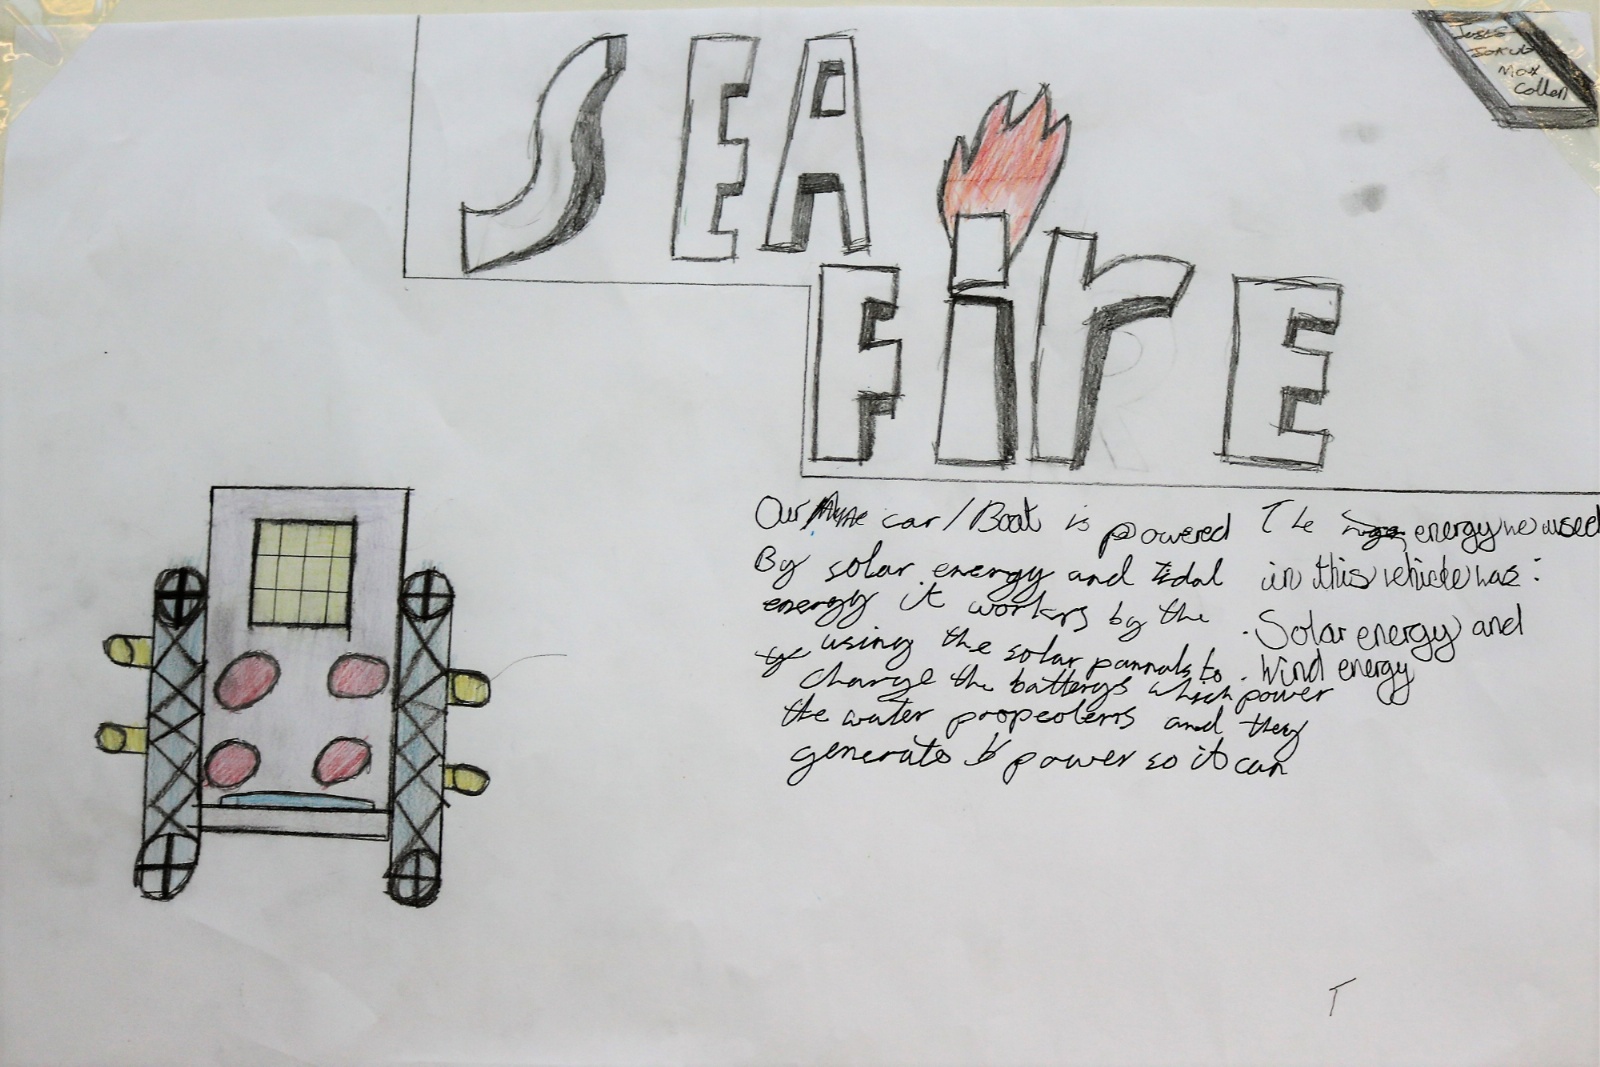 SEA
FirE
Max
Collen
Our car/Boat is powered
By solar energy and tidal
energy it workrs by the
using the solar pannals to
charge the batterys which power
the water propeolerrs and they
generate power so it can
The energy we used
in this vehicle was:
· Solar energy and
· Wind energy
T